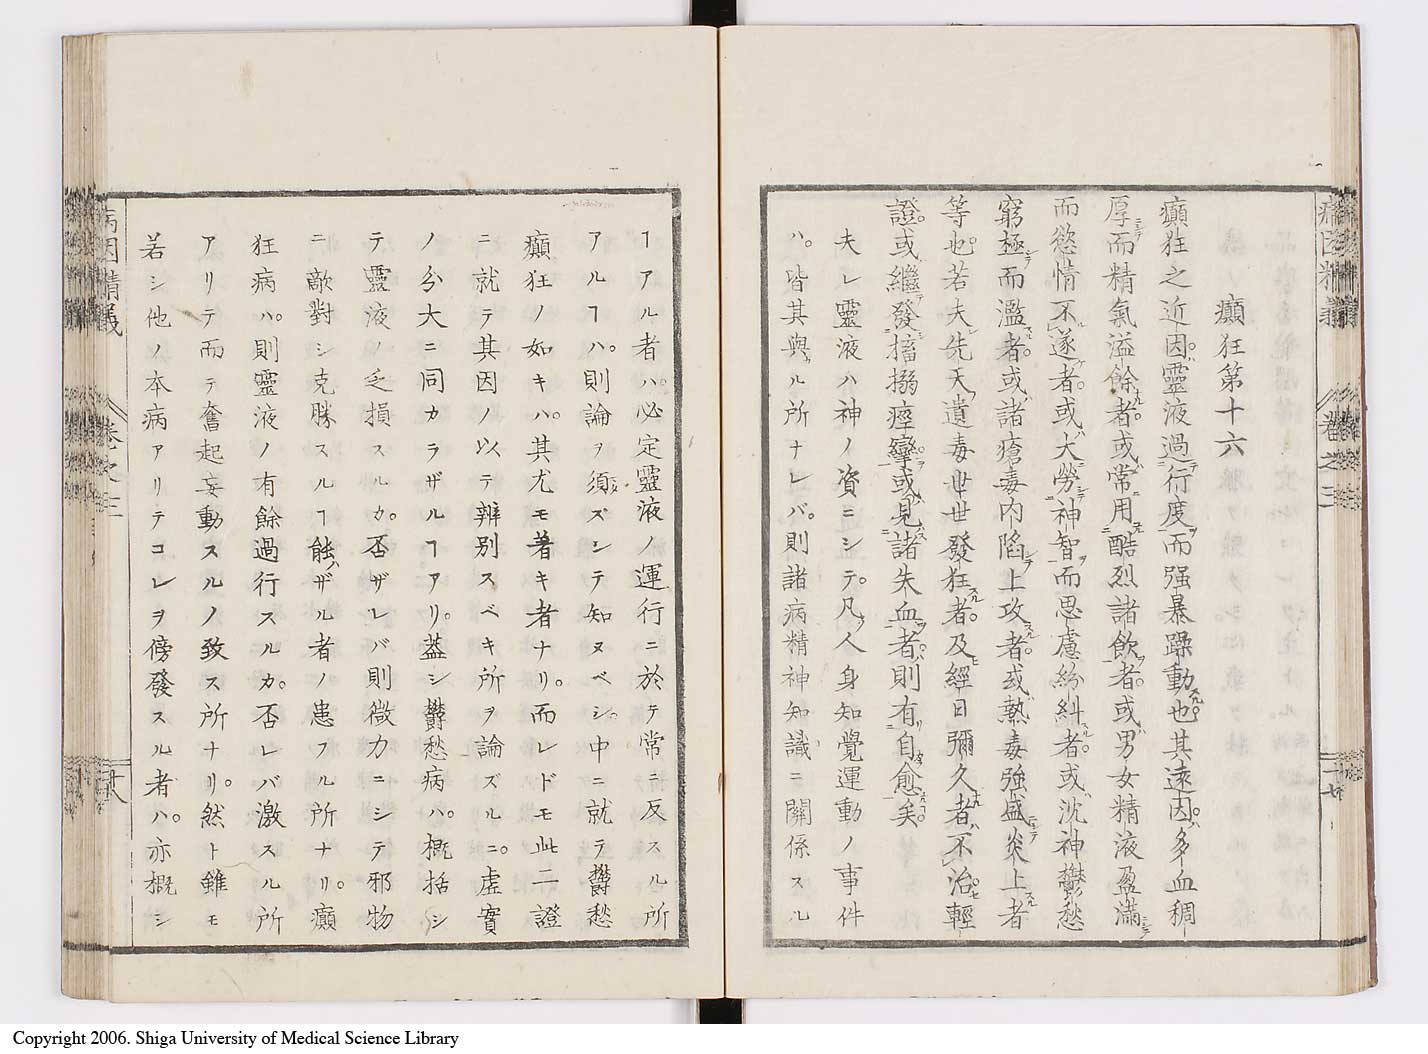 癲狂第十六
癲狂之近因靈液過行度而强暴躁動也其遠因多血稠
厚而精氣溢餘者或常用酷烈諸飲者或男女精液盈滿
而慾情不遂者或大勞神智而思慮紛糾者或沈神鬱愁
窮極而濫者或諸瘡毒内陷上攻者或熱毒強盛炎上者
等也若夫先天遺毒世世發狂者及經日彌久者不治輕
證或繼發搐搦痙攣或見諸失血者則有自愈矣
夫レ靈液ハ神ノ資ニシテ凡人身知覺運動ノ事件
ハ皆其與ル所ナレバ則諸病精神知識ニ關係スル
病因精義 卷之三 二十七
ヿアル者ハ必定靈液ノ運行ニ於テ常ニ反スル所
アルヿハ則論ヲ須ズシテ知ヌベシ中ニ就テ鬱愁
癲狂ノ如キハ其尤モ著キ者ナリ而レドモ此二證
ニ就テ其因ノ以テ辨別スベキ所ヲ論ズルニ虚實
ノ分大ニ同カラザルヿアリ蓋シ鬱愁病ハ概括シ
テ靈液ノ乏損スルカ否ザレバ則微力ニシテ邪物
ニ敵對シ克勝スルヿ能ハザル者ノ患フル所ナリ癲
狂病ハ則靈液ノ有餘過行スルカ否レバ激スル所
アリテ而テ奮起妄動スルノ致ス所ナリ然ト雖モ
若シ他ノ本病アリテコレヲ傍發スル者ハ亦概シ
病因精義 卷之三 廿八
Copyright 2006. Shiga University of Medical Science Library